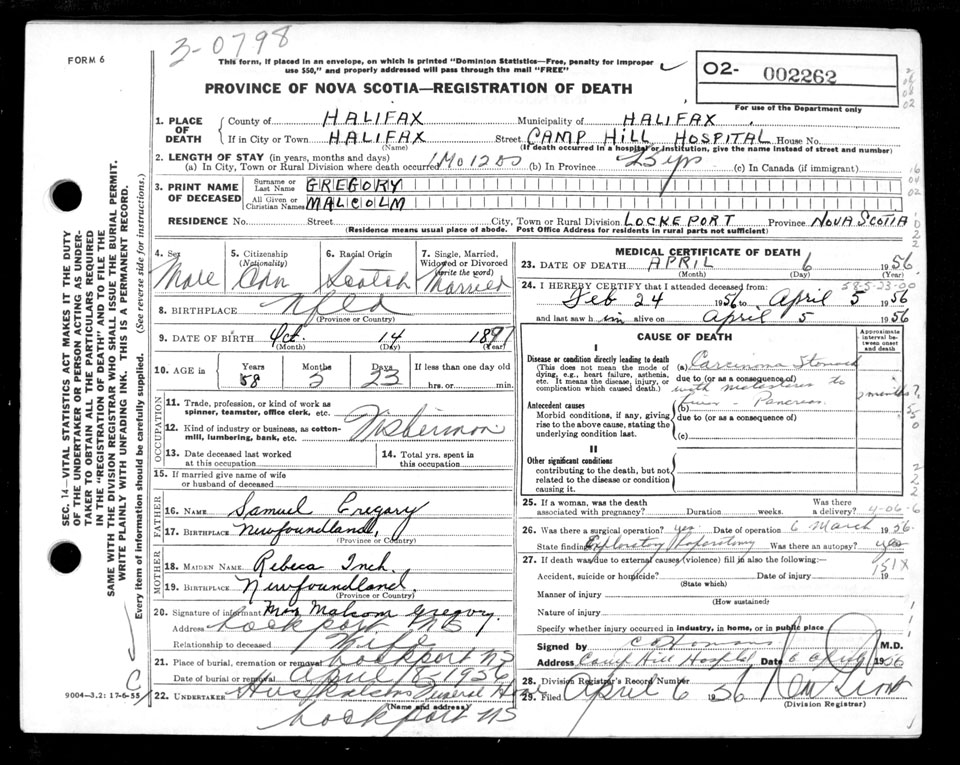 3-0798
FORM 6
This form, if placed in an envelope, on which is printed "Dominion Statistics—Free, penalty for improper
use $50," and properly addressed will pass through the mail "FREE"
O2- 002262
For use of the Department only
PROVINCE OF NOVA SCOTIA—REGISTRATION OF DEATH
1. PLACE OF DEATH
County of HALIFAX Municipality of HALIFAX
If in City or Town HALIFAX Street CAMP HILL HOSPITAL House No.
(Name) (If death occurred in a hospital or institution, give the name instead of street and number)
2. LENGTH OF STAY (in years, months and days)
(a) In City, Town or Rural Division where death occurred 1 Mo 12 DS (b) In Province (c) In Canada (if immigrant)
3. PRINT NAME OF DECEASED
Surname or Last Name GREGORY
All Given or Christian Names MALCOLM
RESIDENCE No. Street City, Town or Rural Division LOCKEPORT Province NOVA SCOTIA
(Residence means usual place of abode. Post Office Address for residents in rural parts not sufficient)
4. Sex Male
5. Citizenship (Nationality) Can
6. Racial Origin Scotch
7. Single, Married, Widowed or Divorced (write the word) Married
8. BIRTHPLACE Nfld
(Province or Country)
9. DATE OF BIRTH Oct. 14 1897
(Month) (Day) (Year)
10. AGE in Years Months Days If less than one day
58 3 23 hrs. or min.
OCCUPATION
11. Trade, profession, or kind of work as spinner, teamster, office clerk, etc.
12. Kind of industry or business, as cotton-mill, lumbering, bank, etc.
Fisherman
13. Date deceased last worked at this occupation
14. Total yrs. spent in this occupation
15. If married give name of wife or husband of deceased
FATHER
16. NAME Samuel Gregory
17. BIRTHPLACE Newfoundland,
(Province or Country)
MOTHER
18. MAIDEN NAME Rebeca Inch.
19. BIRTHPLACE Newfoundland.
(Province or Country)
20. Signature of informant Mrs Malcom Gregory.
Address Lockport NS
Relationship to deceased Wife
21. Place of burial, cremation or removal Lockport NS
Date of burial April 8 1956
22. UNDERTAKER Funeral Home
(Name and address)
Lockport NS
MEDICAL CERTIFICATE OF DEATH
23. DATE OF DEATH APRIL 6 1956
(Month) (Day) (Year)
58-5-23-00
24. I HEREBY CERTIFY that I attended deceased from:
Feb 24 1956 to April 5 1956
and last saw him alive on April 5 1956
CAUSE OF DEATH
Approximate interval between onset and death
I
Disease or condition directly leading to death
(This does not mean the mode of dying, e.g., heart failure, asthenia, etc. It means the disease, injury, or complication which caused death.)
(a) Carcinoma Stomach
due to (or as a consequence of)
with metastases to
Antecedent causes
Morbid conditions, if any, giving rise to the above cause, stating the underlying condition last.
(b) liver - Pancreas.
due to (or as a consequence of)
(c)
II
Other significant conditions
contributing to the death, but not related to the disease or condition causing it.
25. If a woman, was the death associated with pregnancy? Duration weeks. Was there a delivery?
26. Was there a surgical operation? yes Date of operation 6 March 1956
State findings Exploratory Laparotomy Was there an autopsy? yes
27. If death was due to external causes (violence) fill in also the following:
151X
Accident, suicide or homicide? Date of injury 19
(State which)
Manner of injury
(How sustained)
Nature of injury
Specify whether injury occurred in industry, in home, or in public place
Signed by M.D.
Address Camp Hill Hospital Date 6 April 1956
28. Division Registrar's Record Number
29. Filed April 6 1956
(Division Registrar)
SEC. 14—VITAL STATISTICS ACT MAKES IT THE DUTY
OF THE UNDERTAKER OR PERSON ACTING AS UNDERTAKER TO OBTAIN ALL THE PARTICULARS REQUIRED
IN THE "REGISTRATION OF DEATH" AND TO FILE THE
SAME WITH THE DIVISION REGISTRAR WHO SHALL ISSUE THE BURIAL PERMIT.
WRITE PLAINLY WITH UNFADING INK. THIS IS A PERMANENT RECORD.
Every item of information should be carefully supplied. (See reverse side for instructions.)
C
9004—3.2: 17-6-55